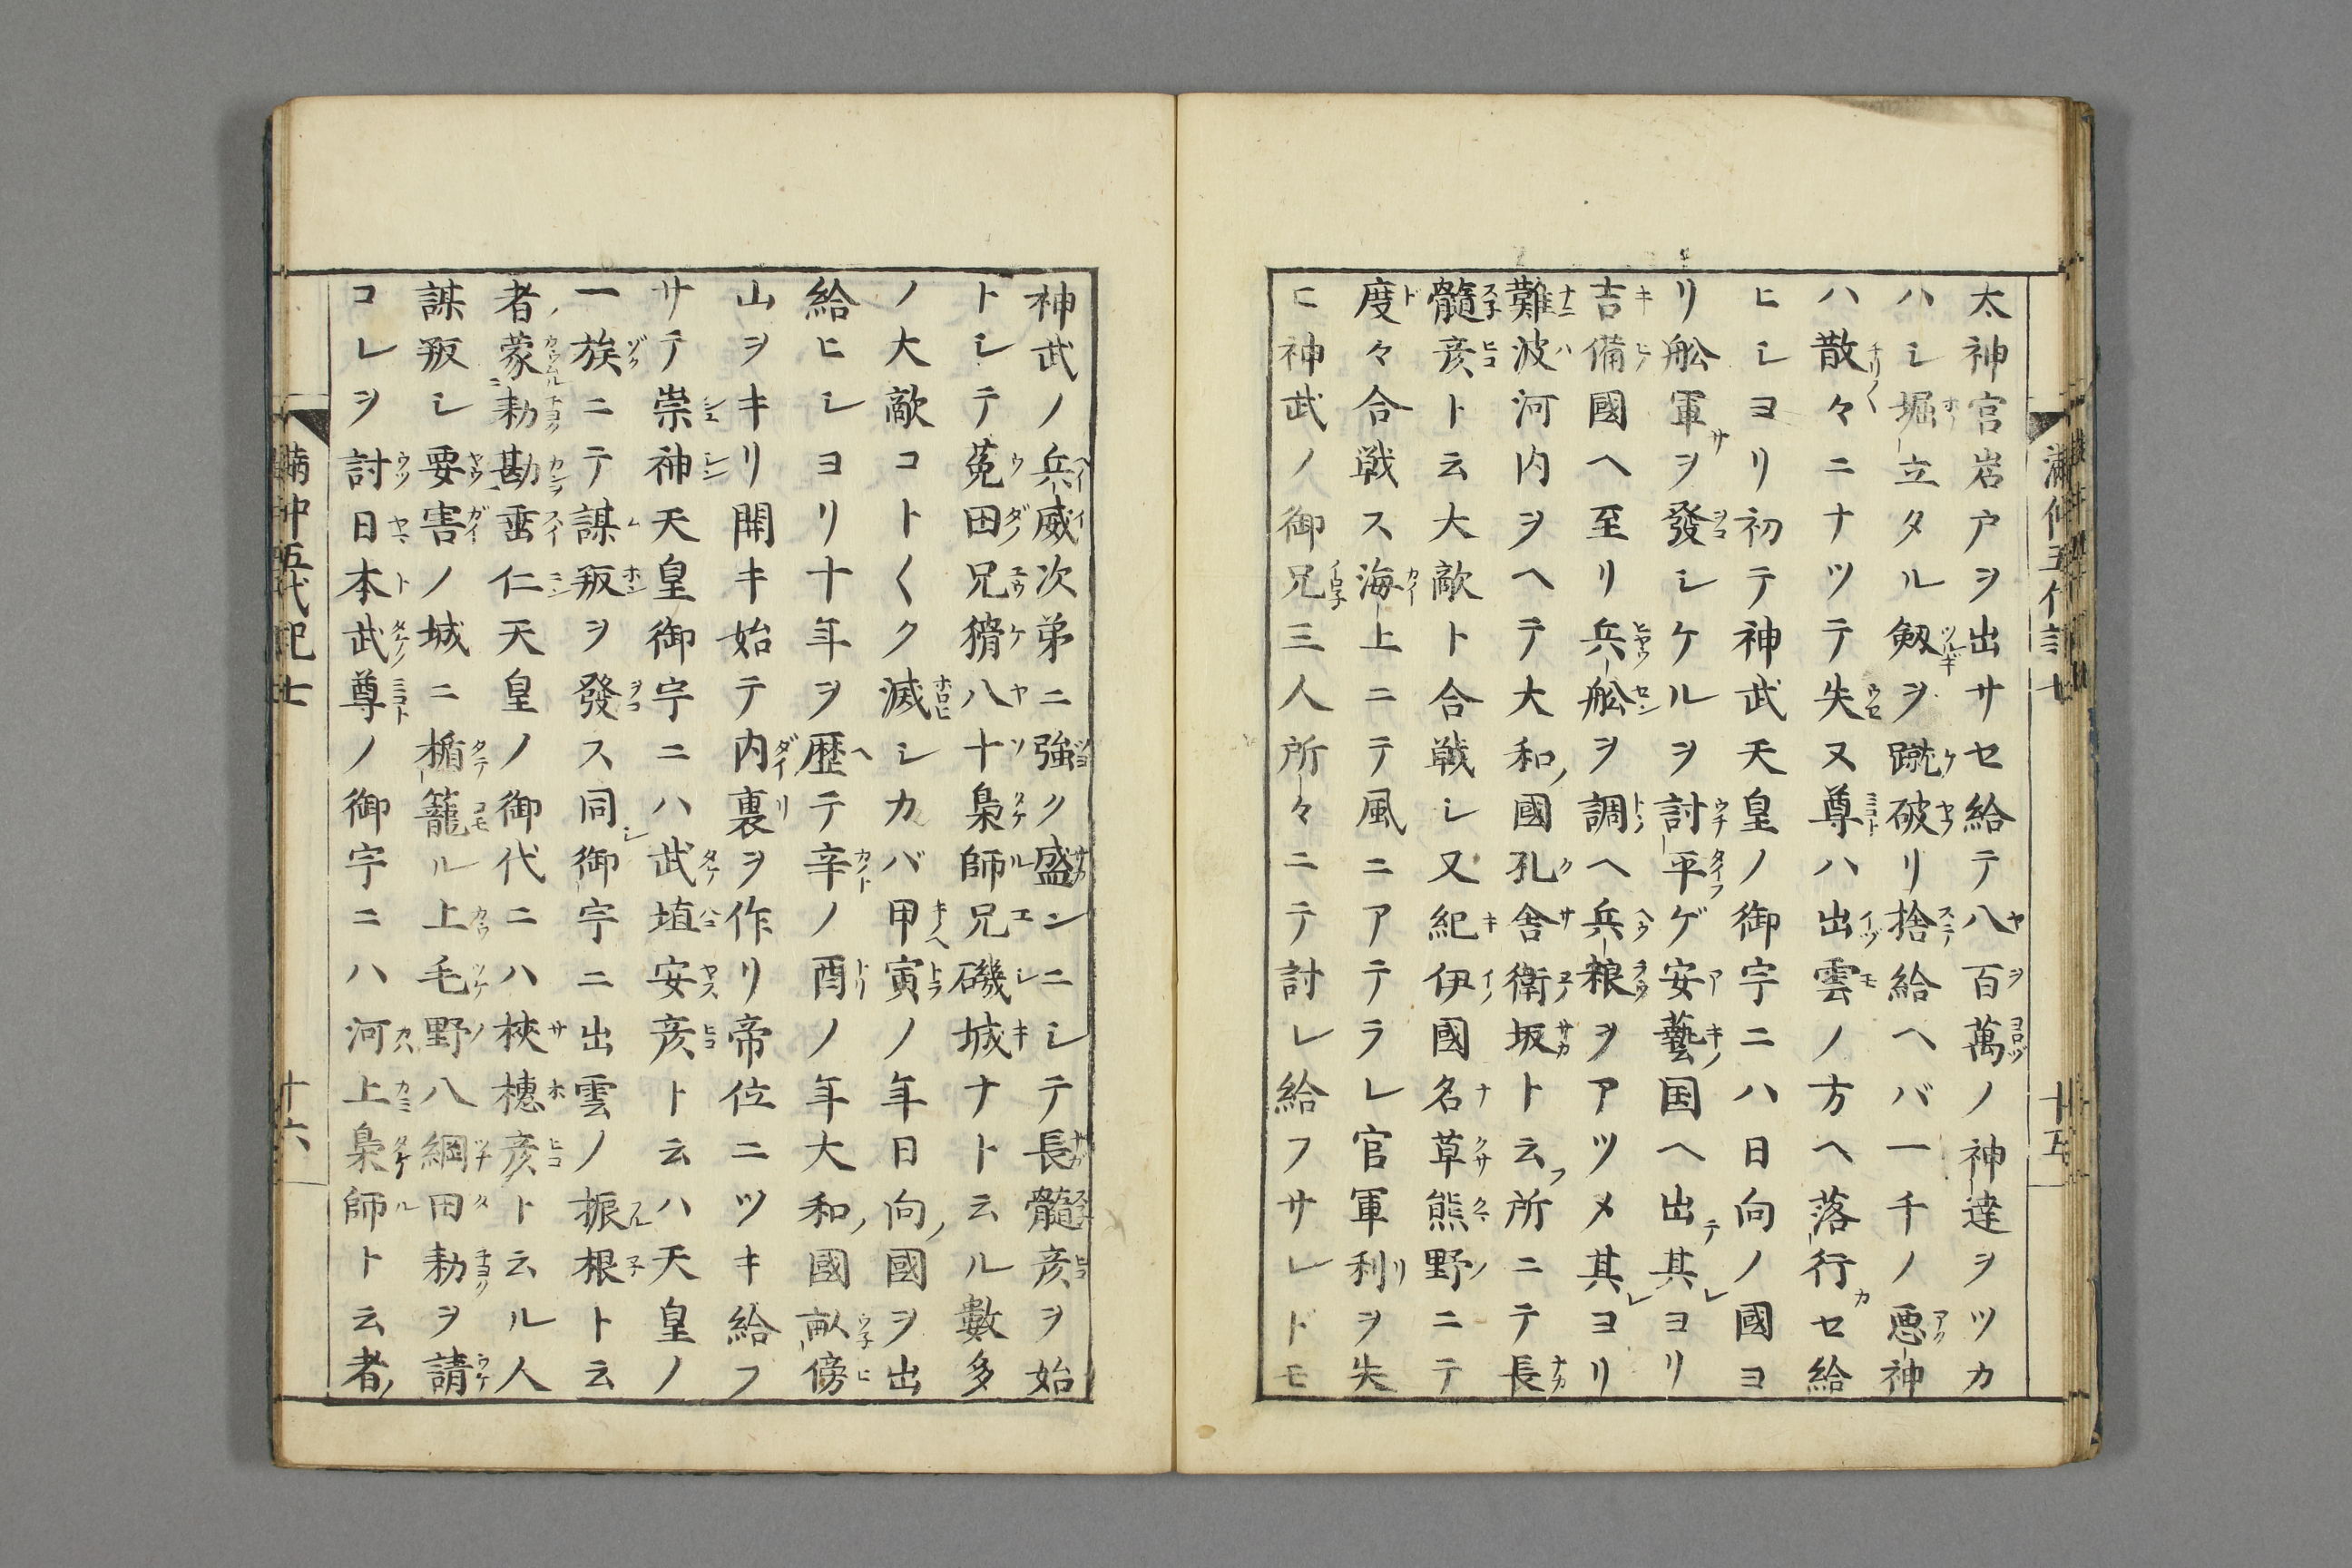 太神宮岩戸ヲ出サセ給テ八百萬ノ神達ヲツカ
ハシ堀立タル剱ヲ蹴破リ捨給ヘバ一千ノ悪神
ハ散々ニナツテ失又尊ハ出雲ノ方ヘ落行セ給
ヒシヨリ初テ神武天皇ノ御宇ニハ日向ノ國ヨ
リ舩軍ヲ發シケルヲ討平ゲ安藝国ヘ出其ヨリ
吉備國ヘ至リ兵舩ヲ調ヘ兵粮ヲアツメ其ヨリ
難波河内ヲヘテ大和國孔舎衛坂ト云所ニテ長
髓彦ト云大敵ト合戦シ又紀伊國名草熊野ニテ
度々合戦ス海上ニテ風ニアテラレ官軍利ヲ失
ヒ神武ノ御兄三人所々ニテ討レ給フサレドモ
満仲五代記七 十五
神武ノ兵威次第ニ強ク盛ンニシテ長髓彦ヲ始
トシテ菟田兄猾八十梟師兄磯城ナト云ル數多
ノ大敵コトく〱ク滅シカバ甲寅ノ年日向國ヲ出
給ヒシヨリ十年ヲ歴テ辛ノ酉ノ年大和國畝傍
山ヲキリ開キ始テ内裏ヲ作リ帝位ニツキ給フ
サテ崇神天皇御宇ニハ武埴安彦ト云ハ天皇ノ
一族ニテ謀叛ヲ發ス同御宇ニ出雲ノ振根ト云
者蒙勅勘垂仁天皇ノ御代ニハ狹穂彦ト云ル人
謀叛シ要害ノ城ニ楯籠ル上毛野八綱田勅ヲ請
コレヲ討日本武尊ノ御宇ニハ河上梟師ト云者
満仲五代記七 十六